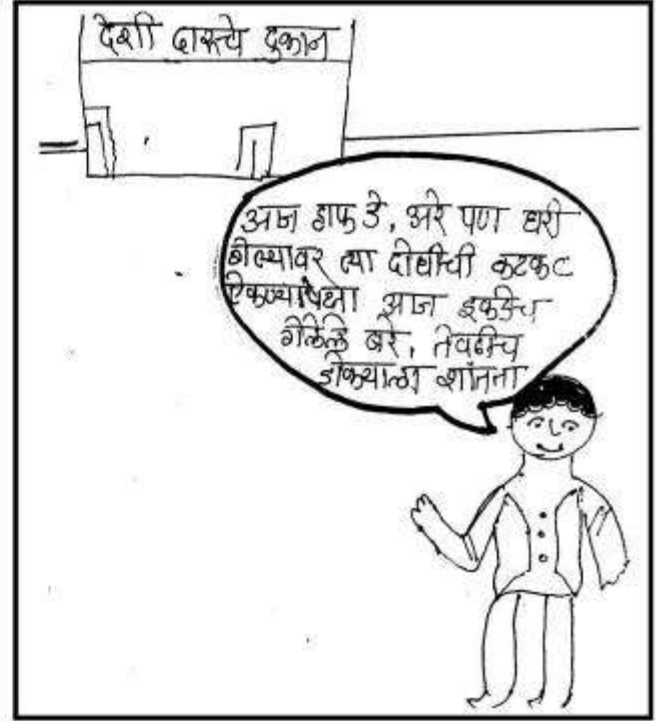 देशी दारूचे दुकान
आज हाफ डे, अरे पण घरी
गेल्यावर त्या दोघींची कटकट
ऐकण्यापेक्षा आज इकडेच
गेलेले बरे, तेवढीच
डोक्याला शांतता